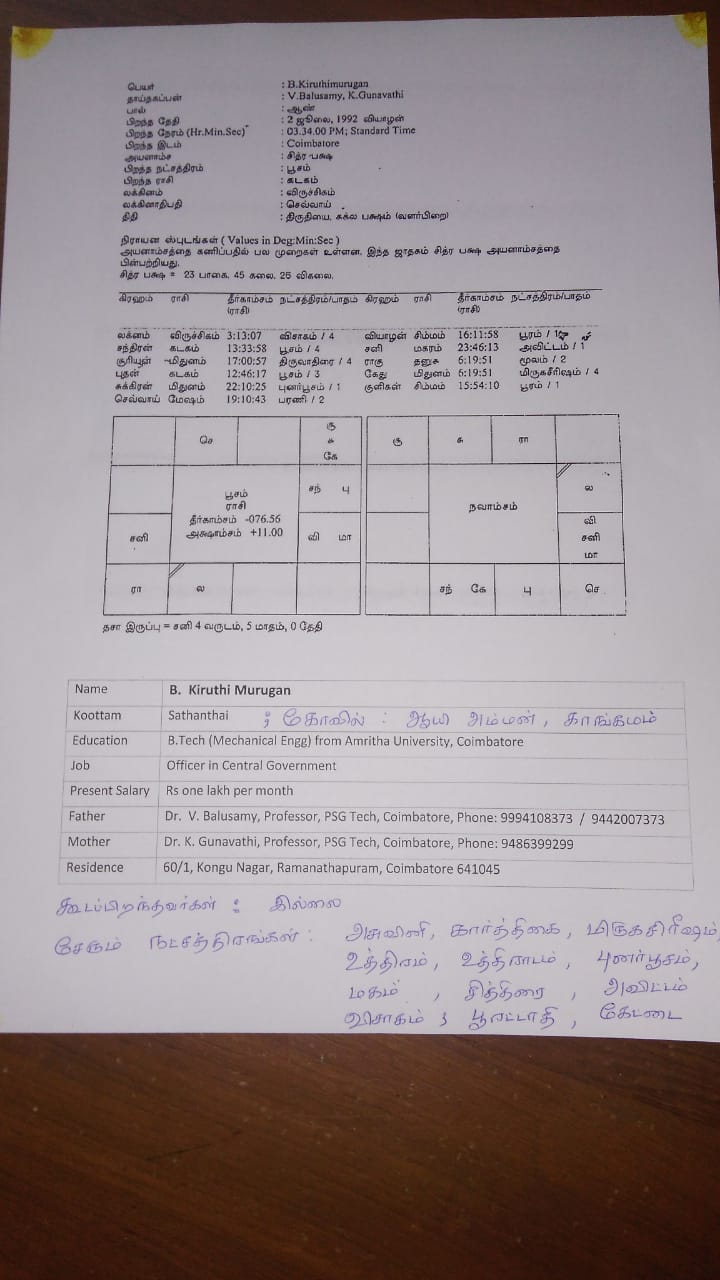 பெயர் : B.Kiruthimurugan
தாய்தகப்பன் : V.Balusamy, K.Gunavathi
பால் : ஆண்
பிறந்த தேதி : 2 ஜூலை, 1992 வியாழன்
பிறந்த நேரம் (Hr.Min.Sec) : 03.34.00 PM; Standard Time
பிறந்த இடம் : Coimbatore
அயனாம்ச : சித்ர பக்ஷ
பிறந்த நட்சத்திரம் : பூசம்
பிறந்த ராசி : கடகம்
லக்கினம் : விருச்சிகம்
லக்கினாதிபதி : செவ்வாய்
திதி : திருதியை, சுக்ல பக்ஷம் (வளர்பிறை)
நிராயன ஸ்புடங்கள் ( Values in Deg:Min:Sec )
அயனாம்சத்தை கணிப்பதில் பல முறைகள் உள்ளன. இந்த ஜாதகம் சித்ர பக்ஷ அயனாம்சத்தை
பின்பற்றியது.
சித்ர பக்ஷ = 23 பாகை. 45 கலை. 26 விகலை.
கிரஹம் ராசி தீர்காம்சம் நட்சத்திரம்/பாதம் கிரஹம் ராசி தீர்காம்சம் நட்சத்திரம்/பாதம்
(ராசி) (ராசி)
லக்னம் விருச்சிகம் 3:13:07 விசாகம் / 4 வியாழன் சிம்மம் 16:11:58 பூரம் / 1
சந்திரன் கடகம் 13:33:58 பூசம் / 4 சனி மகரம் 23:46:13 அவிட்டம் / 1
சூரியன் மிதுனம் 17:00:57 திருவாதிரை / 4 ராகு தனுசு 6:19:51 மூலம் / 2
புதன் கடகம் 12:46:17 பூசம் / 3 கேது மிதுனம் 6:19:51 மிருகசீரிஷம் / 4
சுக்கிரன் மிதுனம் 22:10:25 புனர்பூசம் / 1 குளிகன் சிம்மம் 15:54:10 பூரம் / 1
செவ்வாய் மேஷம் 19:10:43 பரணி / 2
செ கு சு ரா
கே
சந் பு ல
பூசம்
ராசி
தீர்காம்சம் -076.56
அக்ஷாம்சம் +11.00
நவாம்சம்
சனி வி மா வி
சனி
மா
ரா ல சந் கே பு செ
தசா இருப்பு = சனி 4 வருடம், 5 மாதம், 0 தேதி
Name B. Kiruthi Murugan
Koottam Sathanthai ; கோவில் : ஆயி அம்மன், காங்கயம்
Education B.Tech (Mechanical Engg) from Amritha University, Coimbatore
Job Officer in Central Government
Present Salary Rs one lakh per month
Father Dr. V. Balusamy, Professor, PSG Tech, Coimbatore, Phone: 9994108373 / 9442007373
Mother Dr. K. Gunavathi, Professor, PSG Tech, Coimbatore, Phone: 9486399299
Residence 60/1, Kongu Nagar, Ramanathapuram, Coimbatore 641045
கூடப்பிறந்தவர்கள் : இல்லை
சேரும் நட்சத்திரங்கள் : அசுவினி, கார்த்திகை, மிருகசிரீஷம்,
உத்திரம், உத்திராடம், புனர்பூசம்,
மகம் , சித்திரை , அவிட்டம்
விசாகம் ; பூரட்டாதி , கேட்டை